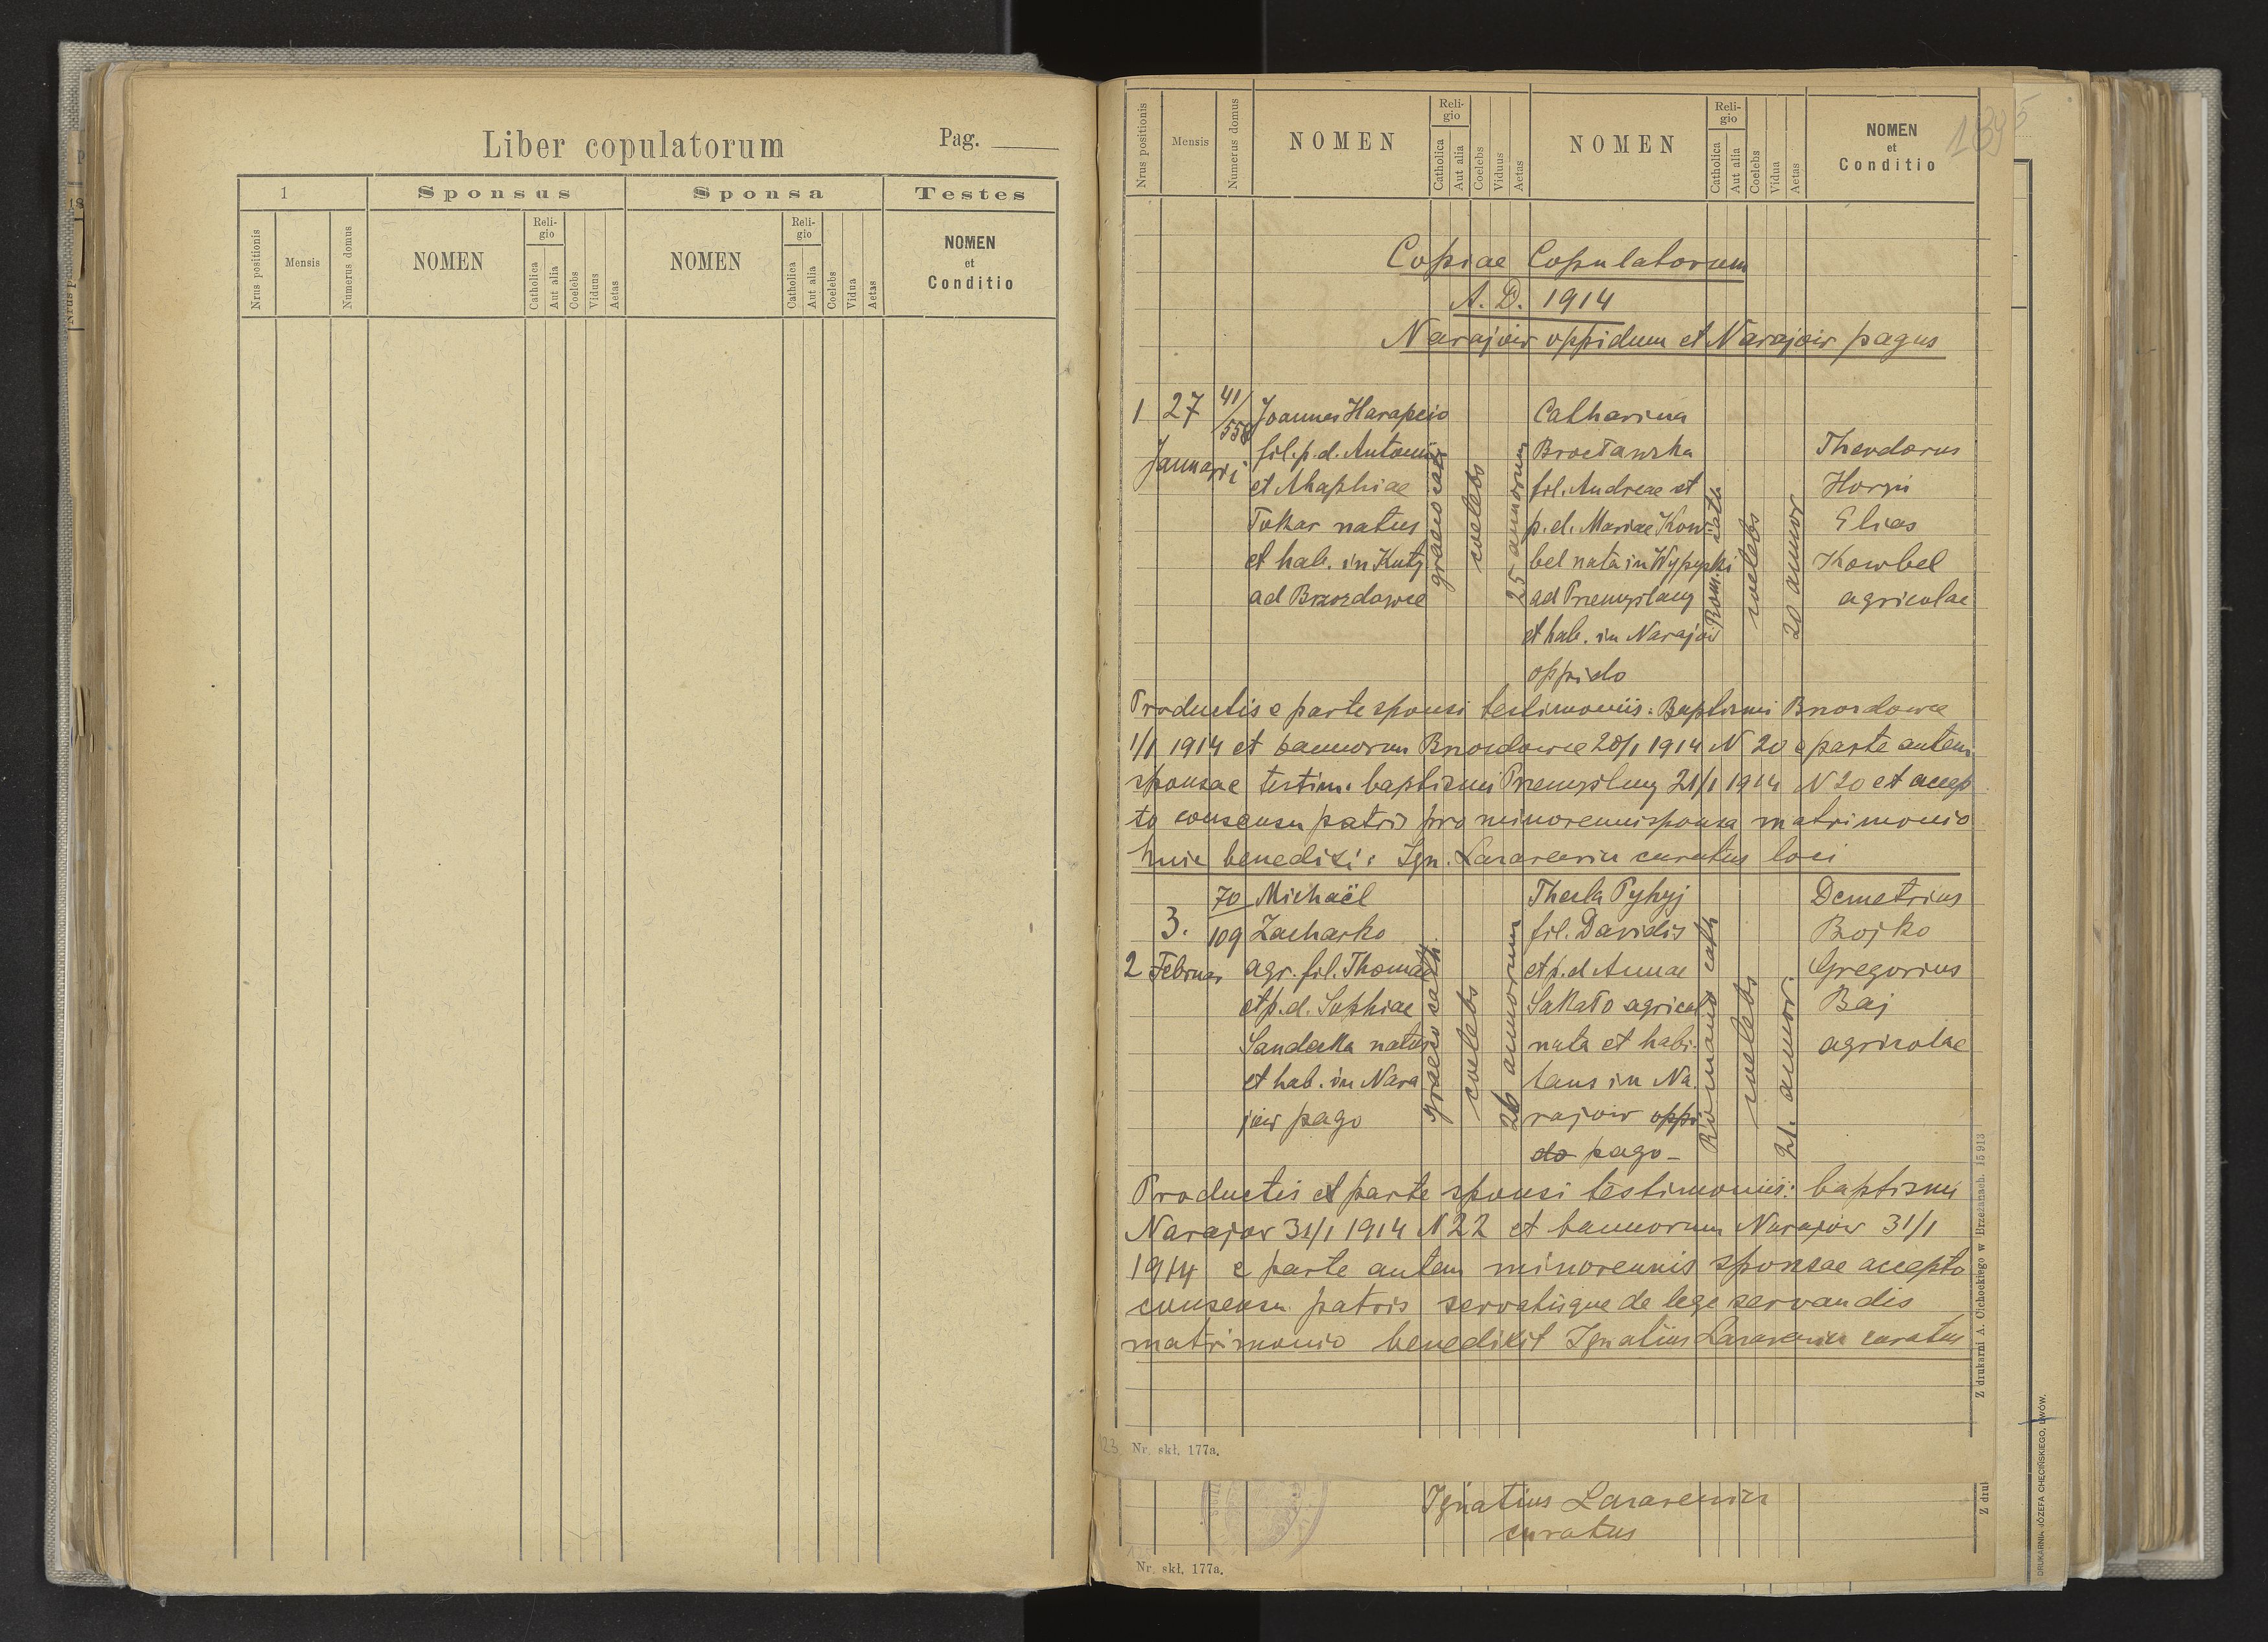 Liber copulatorum
Pag.
1
Sponsus
Sponsa
Testes
Nrus positionis
Mensis
Numerus domus
NOMEN
Religio
Catholica
Aut alia
Coelebs
Viduus
Aetas
NOMEN
Religio
Catholica
Aut alia
Coelebs
Vidua
Aetas
NOMEN
et
Conditio
Nrus positionis
Mensis
Numerus domus
NOMEN
Religio
Catholica
Aut alia
Coelebs
Viduus
Aetas
NOMEN
Religio
Catholica
Aut alia
Coelebs
Vidua
Aetas
NOMEN
et
Conditio
Copiae Copulatorum
A. D. 1914
Narajów oppidum et Narajów pagus
1
27
Januarii
41/558
Joannes Harapcio
fil. p. d. Antonii
et Ahaphiae
Tokar natus
et hab. in Kuty
ad Brzozdowce
graeco cath
coelebs
25 annorum
Catharina
Brocławska
fil. Andreae et
p. d. Mariae Kow
bel nata in Wypyski
ad Przemyślany
et hab. in Narajów
oppido
Rom. cath
coelebs
20 annor
Theodorus
Horyń
Elias
Kowbel
agricolae
Productis e parte sponsi testimoniis: Baptismi Brzozdowce
1/1 1914 et bannorum Brzozdowce 20/1 1914 N 20 e parte autem
sponsae testim. baptismi Przemyślany 21/1 1914 N 20 et accep
to consensu patris pro minorenni sponsa matrimonio
huic benedixi: Ign. Lazarewicz curatus loci
2
3.
Februar
70
109
Michaël
Zacharko
agr. fil. Thomae
et p. d. Sophiae
Sandecka natus
et hab. in Nara
jów pago
Graeco cath.
coelebs
26 annorum
Thecla Pyhyj
fil. Davidis
et p. d Annae
Sakało agricol
nata et habi-
tans in Na.
rajow oppi
do pago -
Romano cath
coelebs
21. annor.
Demetrius
Bojko
Gregorius
Baj
agricolae
Productis et parte sponsi testimoniis: baptismi
Narajow 31/1 1914 N 22 et bannorum Narajow 31/1
1914 e parte autem minorennis sponsae accepto
consensu patris servatisque de lege servandis
matrimonio benedixit Ignatius Lazarewicz curatus
Z drukarni A. Cichockiego w Brzeżanach. 15913
Nr. skł. 177a.
Ignatius Lazarewicz
curatus
Z druk
Nr. skł. 177a.
DRUKARNIA JÓZEFA CHĘCIŃSKIEGO, LWÓW.